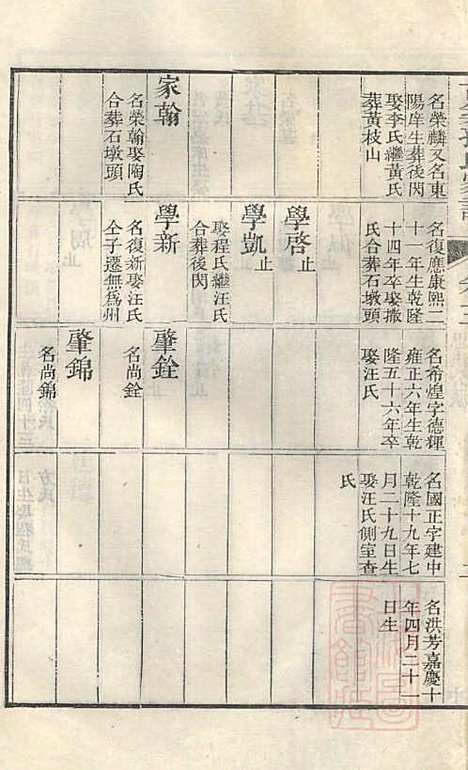 名榮麟又名東
陽庠生葬後閃
娶李氏繼黃氏
葬黃枝山
家翰
名榮翰娶陶氏
合葬石墩頭
名復應康熙二
十一年生乾隆
十四年卒娶
氏合葬石墩頭
學啓止
學凱止
娶程氏繼汪氏
合葬後閃
學新
名復新娶汪氏
仝子遷無為州
名希煌字德輝
雍正六年生乾
隆五十六年卒
娶汪氏
肇銓
名尚銓
肇錦
名尚錦
名國正字建中
乾隆十九年七
月二十九日生
娶汪氏側室查
氏
名洪芳嘉慶十
年四月二十一
日生